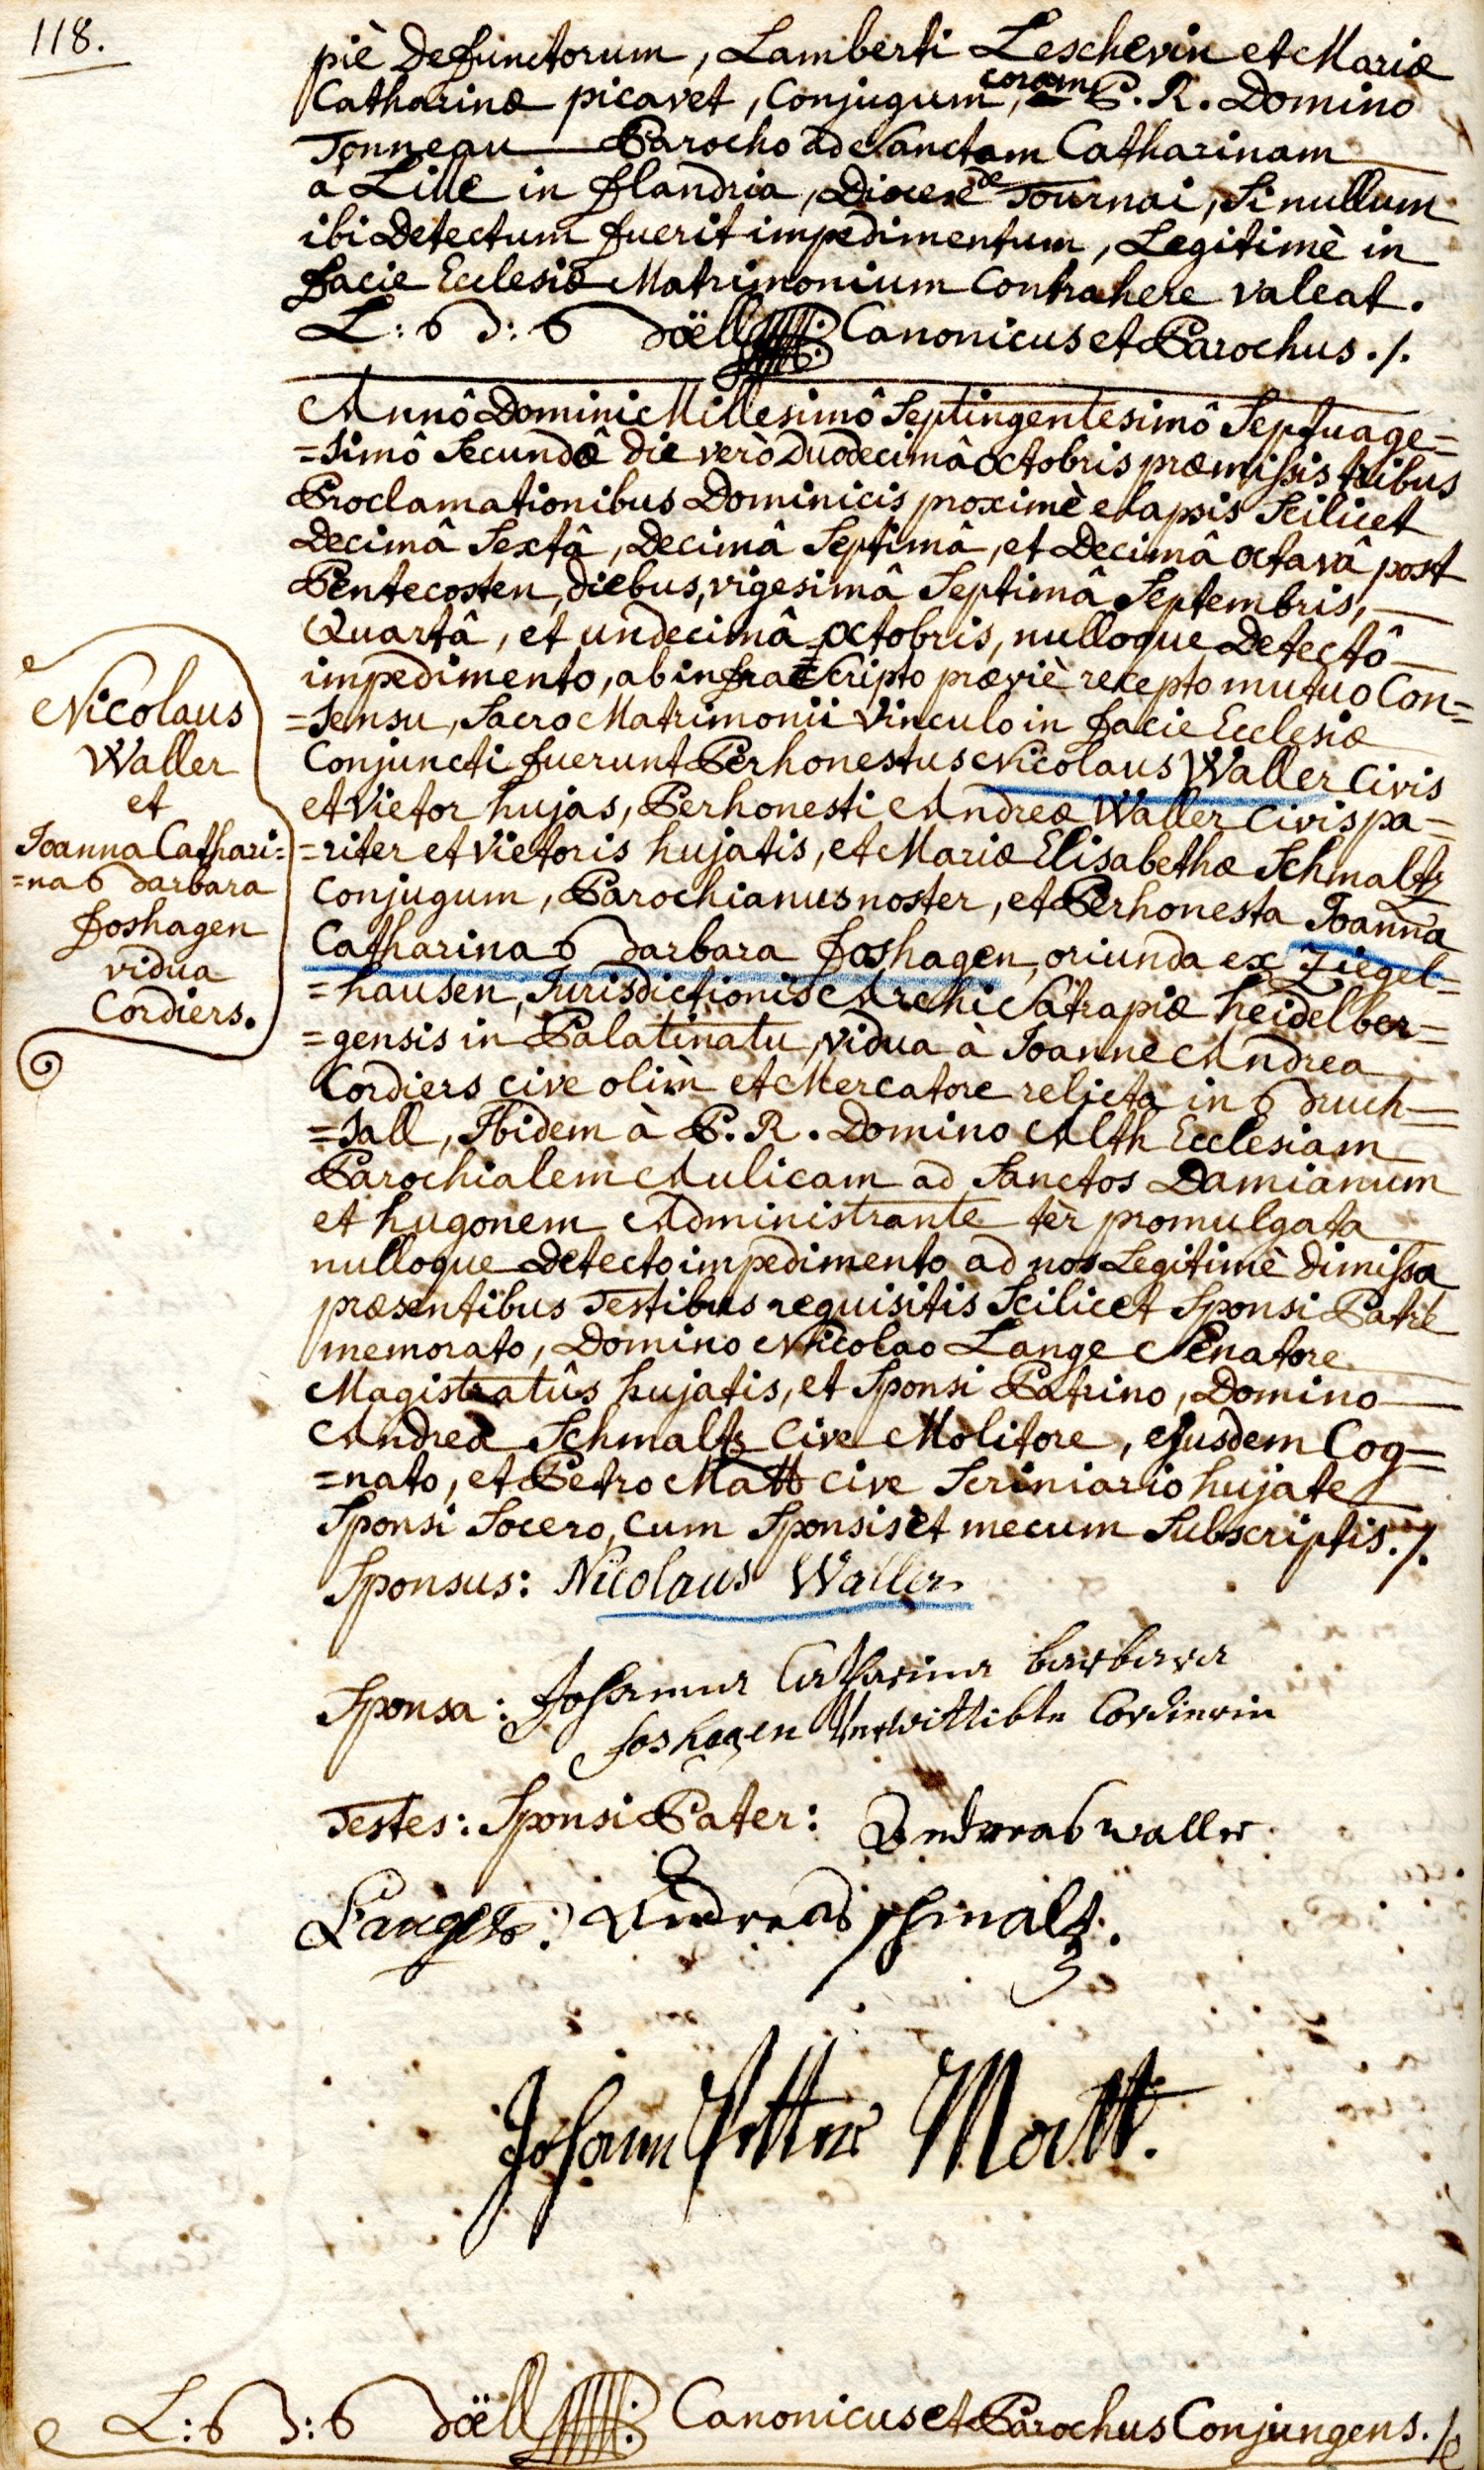 118.
piè Defunctorum, Lamberti Leschevin et Mariæ
Catharinæ picavet, Conjugum, coram P. R. Domino
Tonneau Parocho ad Sanctam Catharinam
a Lille in flandria, Diœcese de Tournai, Si nullum
ibi Detectum fuerit impedimentum, Legitimè in
facie Ecclesiæ Matrimonium Contrahere valeat.
L: B: Böell Canonicus et Parochus ./.
Annô Domini Millesimô Septingentesimô Septuage=
=simô Secundô die verò Duodecimâ octobris præmissis tribus
Proclamationibus Dominicis proximè elapsis Scilicet
Decimâ Sextâ, Decimâ Septimâ, et Decimâ octavâ post
Pentecosten, diebus, vigesimâ Septimâ Septembris,
Quartâ, et undecimâ octobris, nulloque Detectô
impedimento, ab infra Scripto præviè recepto mutuo Con=
=sensu, Sacro Matrimonii Vinculo in facie Ecclesiæ
Conjuncti fuerunt Perhonestus Nicolaus Waller Civis
et Vietor hujas, Perhonesti Andreæ Waller Civis pa=
=riter et Vietoris hujatis, et Mariæ Elisabethæ Schmaltz
Conjugum, Parochianus noster, et Perhonesta Joanna
Catharina Barbara foshagen, oriunda ex Ziegel=
=hausen, Jurisdictionis Archi Satrapiæ heidelber=
=gensis in Palatinatu, vidua à Joanne Andrea
Cordiers cive olim et Mercatore relicta in Bruch=
=sall, Ibidem à P. R. Domino Alth Ecclesiam
Parochialem Aulicam ad Sanctos Damianum
et hugonem Administrante ter promulgata
nulloque Detecto impedimento ad nos Legitimè dimissa
præsentibus Testibus requisitis Scilicet Sponsi Patre
memorato, Domino Nicolao Lange Senatore
Magistratûs hujatis, et Sponsi Patrino, Domino
Andrea Schmaltz Cive Molitore, ejusdem Cog=
=nato, et Petro Matt cive Scriniario hujate
Sponsi Socero, cum Sponsis et mecum Subscriptis ./.
Nicolaus
Waller
et
Joanna Cathari=
=na Barbara
foshagen
vidua
Cordiers.
Sponsus: Nicolaus Waller
Sponsa: Johanna Catharina barbara
foshagen Verwittibte Cordierin
Testes: Sponsi Pater: Andreas waller
Lange Andreas schmaltz.
Johann Petter Matt.
L: B: Böell Canonicus et Parochus Conjungens ./.